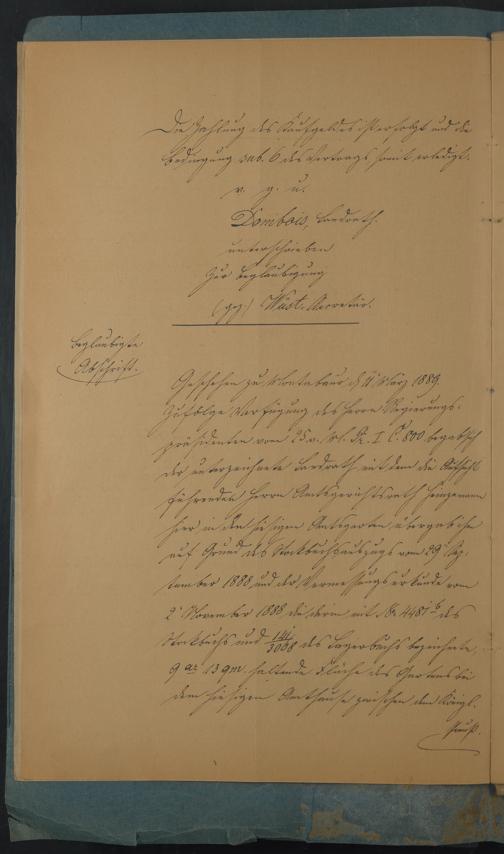 Die Zahlung des Kaufgeldes ist erfolgt und die
Bedingung sub. 6 des Vertrags somit erledigt.
v. g. u.
Dombois, Landrath.
unterschrieben
Zur Beglaubigung
(gez.) Wüst. Secretär.
Beglaubigte
Abschrift.
Geschehen zu Montabaur, d. 11 März 1889.
Zufolge Verfügung des Herrn Regierungs-
präsidenten vom 25. v. Mt. Nr. I C 800 begab sich
der unterzeichnete Landrath mit dem die Aufsicht
führenden Herrn Amtsgerichtsrath
hier in den hiesigen Amtsgarten, übergab ihm
auf Grund des Stockbuchsauszugs vom 29 Sep-
tember 1888, und der Vermessungsurkunde vom
2 November 1888 die darin mit Nr 4481 b des
Stockbuchs und 141/3068 des Lagerbuchs bezeichnete,
9 ar 13 qm. haltende Fläche des Gartens bei
dem hiesigen Amthause zwischen dem Königl.